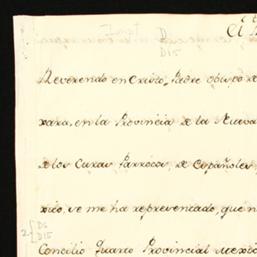 El
D
D15
Reverendo en Cristo, Padre obispo de
xara, en la Provincia de la Nueva
de los Curas Parrocos, de Españoles,
xico, se me ha representado, que
Concilio Quarto Provincial Mexic
2 { D6
D15